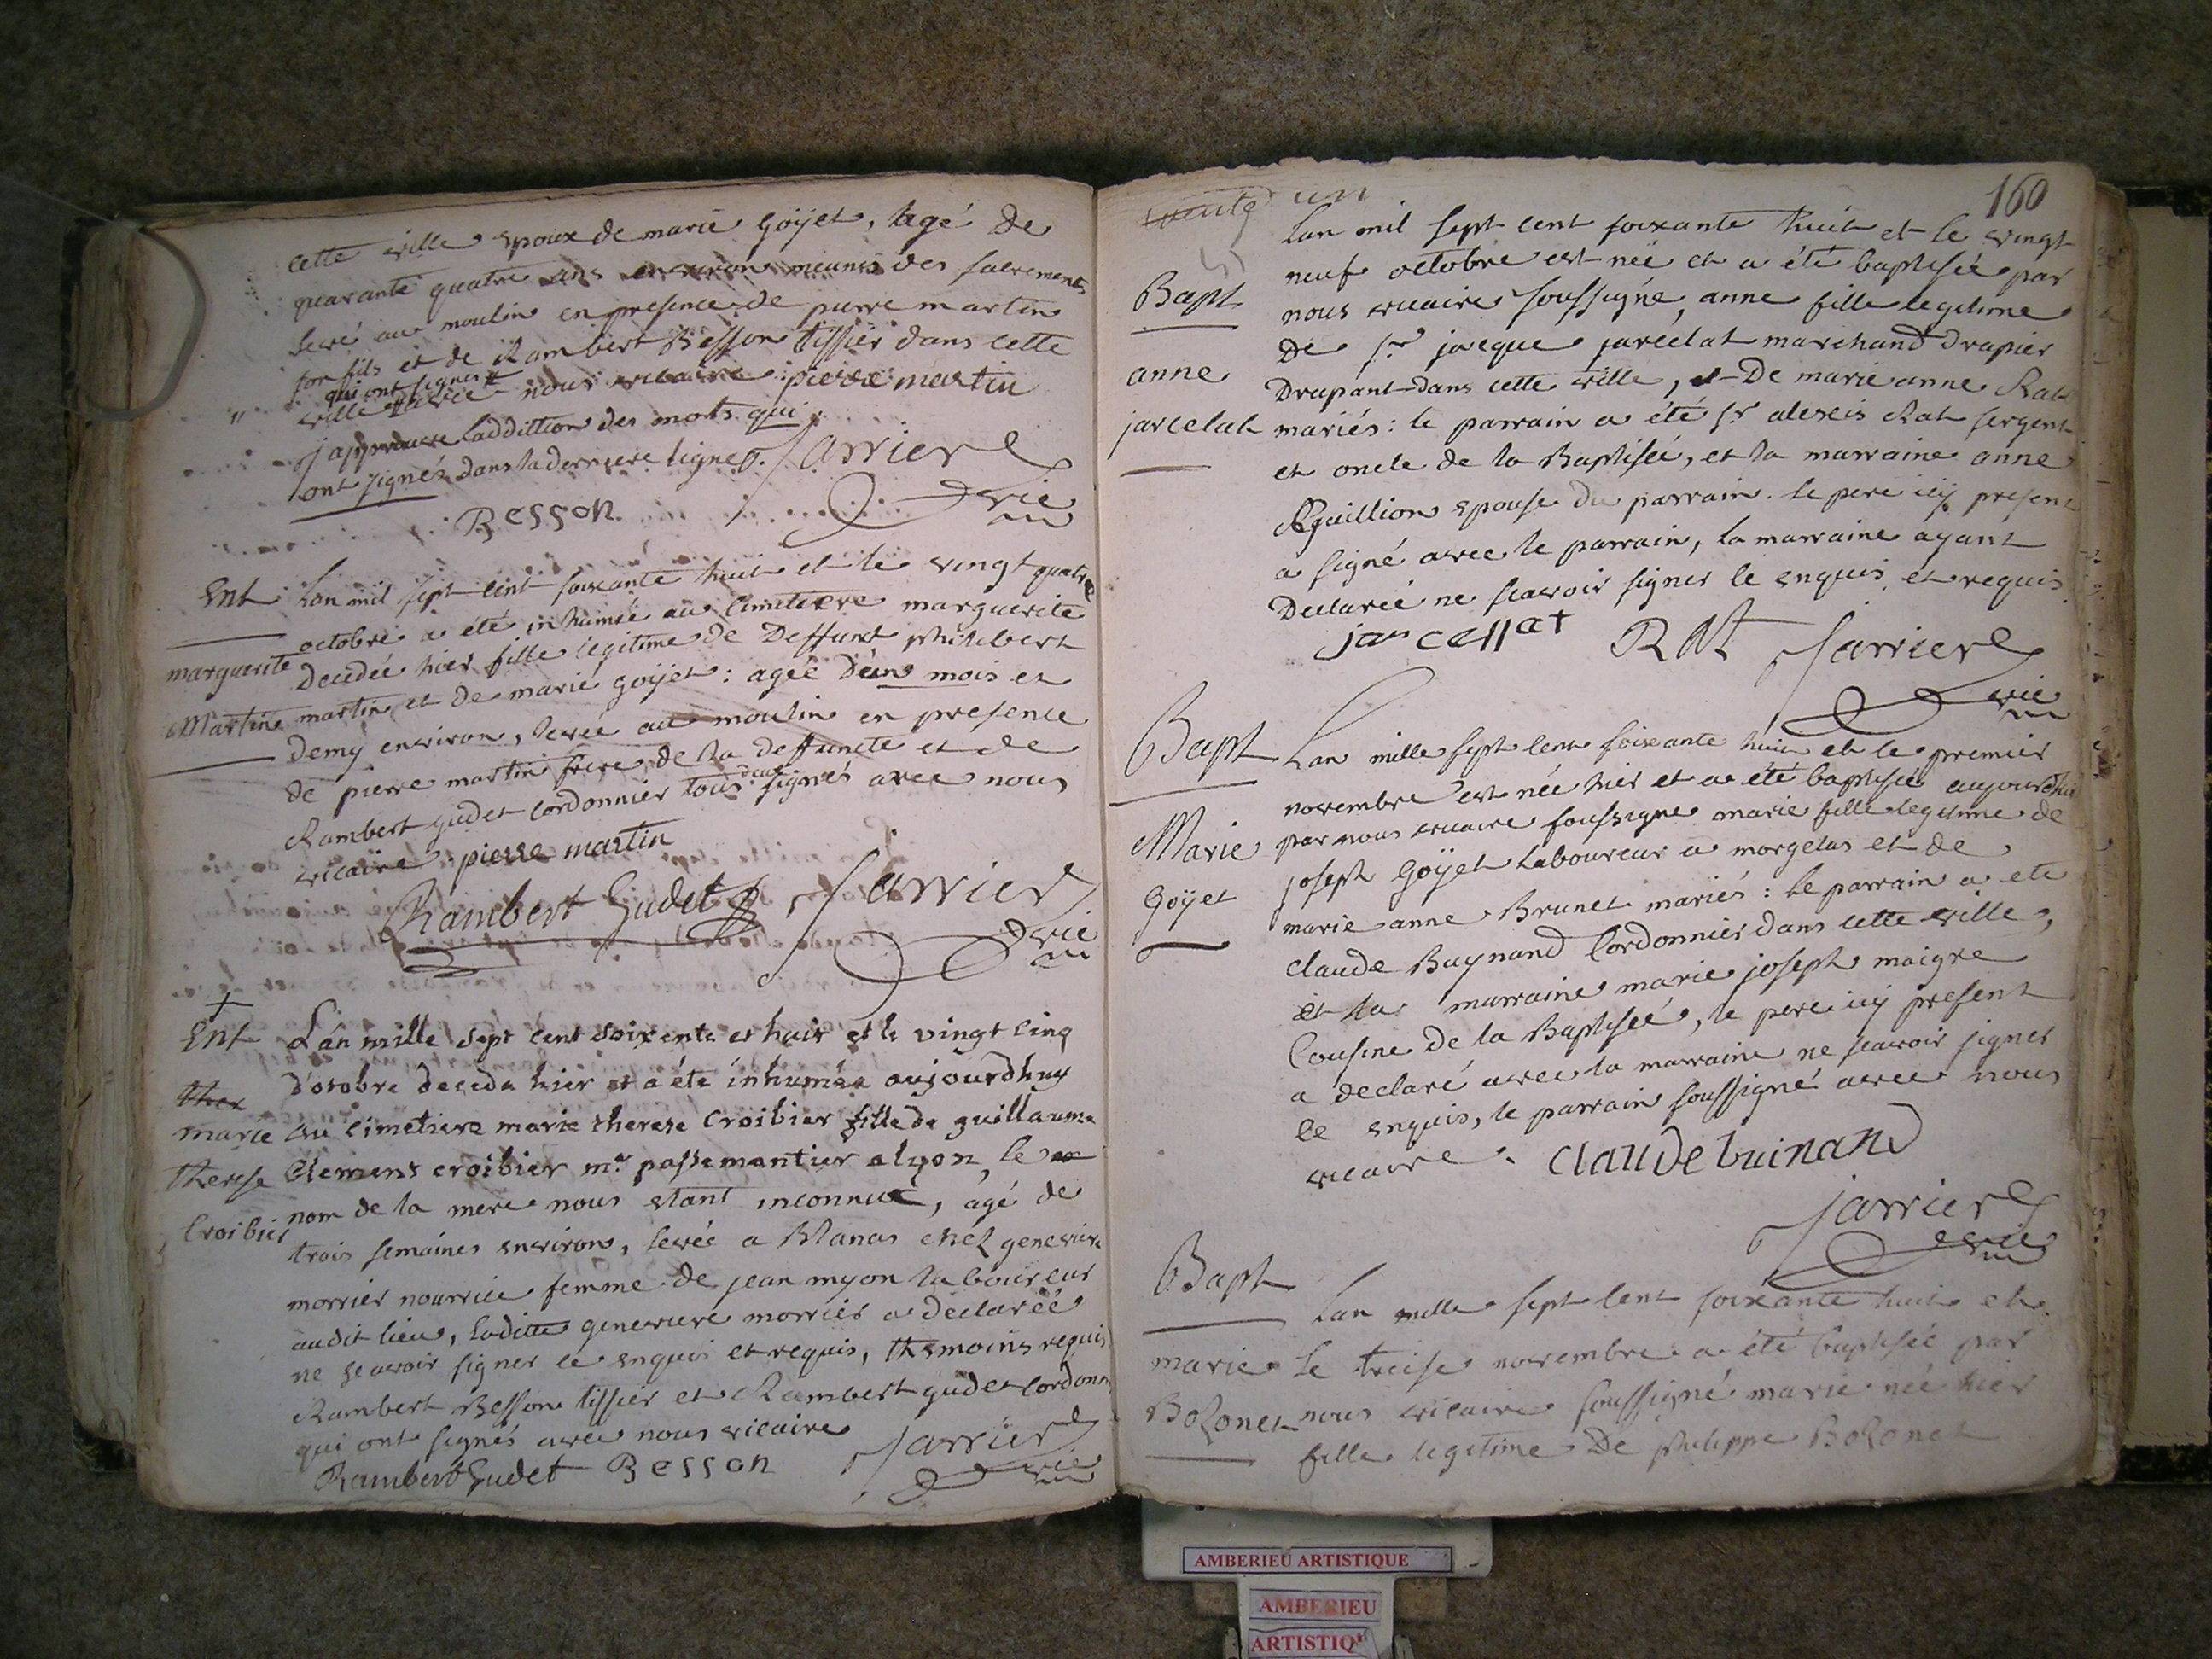 cette ville epoux de marie goÿet, agé de
quarante quatre ans environ meunis des sacrements
levé au moulin en presence de pierre martin
son fils et de Rambert Besson tissier dans cette
qui ont signés
ville avec nous vicaire pierre martin
j'approuve laddittion des mots qui
ont signés dans la derniere ligne. Jarrier
vic
Besson
Ent Lan mil sept cent soixante huit et le vingt quatre
octobre a été inhumée au cimetiere marguerite
marguerite decedée hier fille legitime de Deffunt philibert
Martin martin et de marie goÿet : agée d'un mois et
demy environ, levée au moulin en presence
de pierre martin frere de la deffuncte et de
deux
Rambert gudet cordonnier tous signés avec nous
vicaire pierre martin
Rambert Gudet Jarrier
vic
Ent L'an mille sept cent soixente et huit et le vingt cinq
d'otobre deceda hier et a été inhumée aujourdhuy
ther
marie au cimetiere marie therese croibier fille de guillaume
therese Clemens croibier mr passemantier a lyon, le
Croibier nom de la mere nous etant inconnue, agé de
trois semaines environ, levée a Blanas chez genevieve
morrier nourrice femme de jean myon laboureur
audit lieu, laditte genevieve morrier a declareé
ne scavoir signer ce enquis et requis, thsmoins requis
Rambert Besson tissier et Rambert gudet cordonn
qui ont signés avec nous vicaire
Rambert Gudet Besson Jarrier
vic
160
un
Lan mil sept cent soixante huit et le vingt
neuf octobre est née et a été baptisée par
Bapt nous vicaire soussigné, anne fille legitime
de sr jacque jarcelat marchand drapier
anne Drapant dans cette ville, et De marie anne Rat
jarcelat mariés : le parrain a été sr alexis Rat sergent
et oncle de la Baptisée, et la marraine anne
Aguillion epouse du parrain. le pere icy present
a signé avec le parrain, la marraine ayant
Declareé ne scavoir signer le enquis et requis
jarcellat RAt Jarrier
vic
Bapt Lan mille sept cent soixante huit et le premier
novembre est née hier et a été baptisée aujourdhui
Marie par nous vicaire soussigne marie fille legitime de
joseph Goÿet laboureur a morgelas et de
Goÿet marie anne Brunet mariés : le parrain a ete
claude Buynand Cordonnier dans cette ville,
et la marraine marie joseph maigre
Cousine de la Baptisée, le pere icy present
a declaré avec la marraine ne scavoir signer
ce enquis, le parrain soussigné avec nous
vicaire. claude buinand
jarrier
vic
Bapt Lan mille sept cent soixante huit et
marie le treise novembre a été baptisée par
Bozonet nous vicaire soussigné marie née hier
fille legitime De philippe Bozonet
AMBERIEU ARTISTIQUE
AMBERIEU
ARTISTIQ